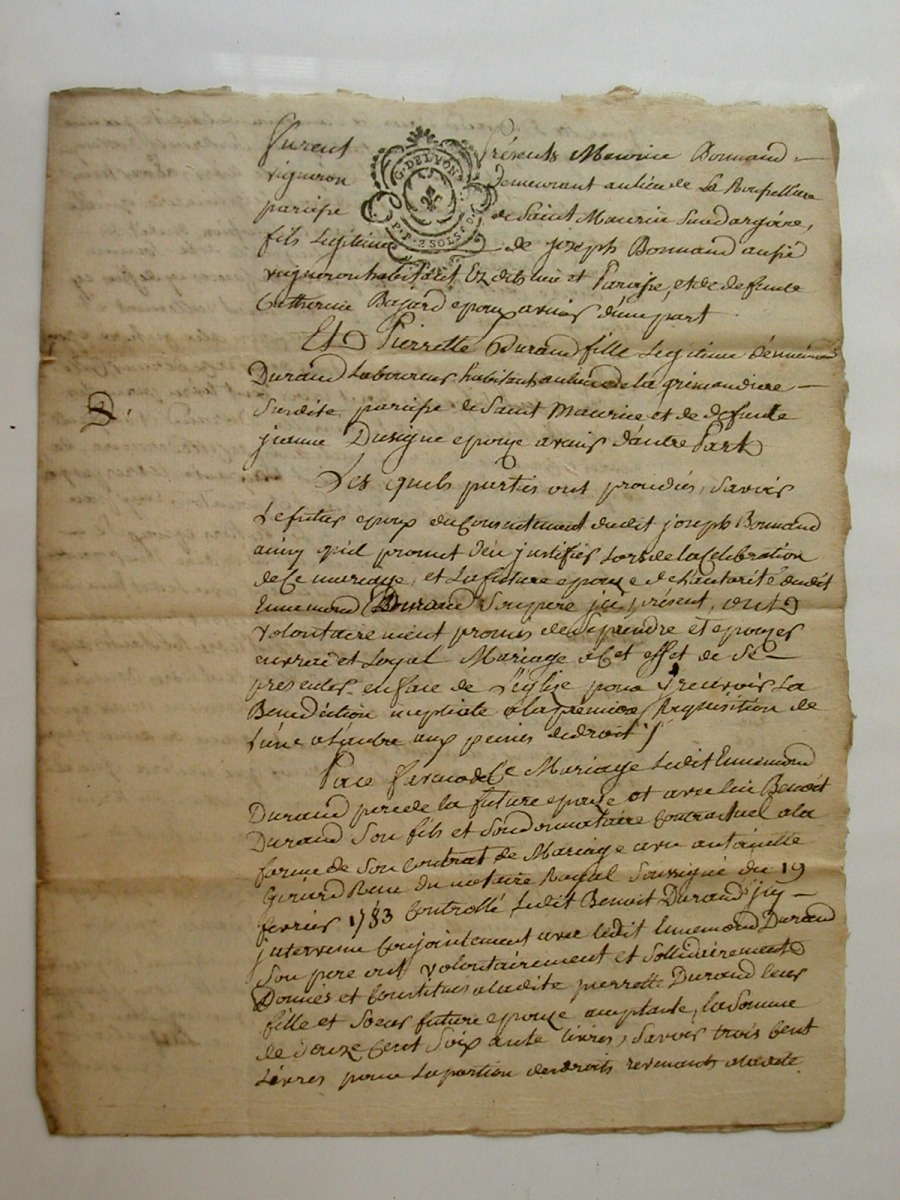 Furent Présents Maurice Bonnand
G. DE LYON
vigneron demeurant au lieu de La Roussilliere
paroisse de Saint Maurice Surdargoire,
P.P. 2 SOLS
fils legitime de joseph Bonnand aussi
vigneron habitant Ez dits lieu et Paroisse, et de defunte
Catherine Bajard epoux avenir d'une part
Et Pierrette Durand fille Legitime d'ennemond
Durand Laboureur habitant au lieu de la grimaudiere
Susdite paroisse de Saint Maurice et de defunte
jeanne Dusigne epouze avenir d'autre Part
D.
Les quels partis ont procédés, Savoir
Le futur epoux du Consentement dudit joseph Bonnand
ainsy qu'il promet d'en justifier Lors de la Celebration
de Ce mariage, et La future epouze de L'autorité dudit
Ennemond Durand Son pere jcy présent, ont
volontairement promis de Se prendre et epouzer
en vrai et Loyal Mariage a Cet effet de Se
presenter en face de L'églize pour y recevoir La
Benediction nuptiale a la premiere Requisition de
L'une a L'autre aux peines de droit
Pour faveur de Ce Mariage Ledit Ennemond
Durand pere de la future epouze et avec lui Benoit
Durand Son fils et Son donnataire Contractuel a la
forme de Son Contrat de Mariage avec antoinette
Girard Reçu du notaire Royal Soussigné du 19
fevrier 1783 Controllé Ledit Benoit Durand jcy
jntervenu Conjointement avec ledit Ennemond Durand
Son pere ont volontairement et Sollidairement
Donnés et Constitués a ladite pierrette Durand leur
fille et Soeur future epouze acceptante, la Somme
de Douze Cent Soixante livres, Savoir trois Cent
Livres pour La portion des droits revenants a ladite